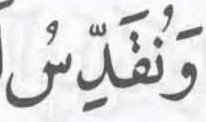 وَنُقَدِّسُ